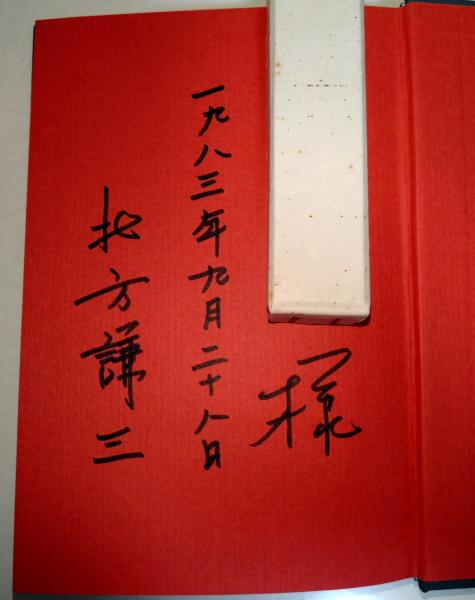 様
一九八三年九月二十八日
北方謙三